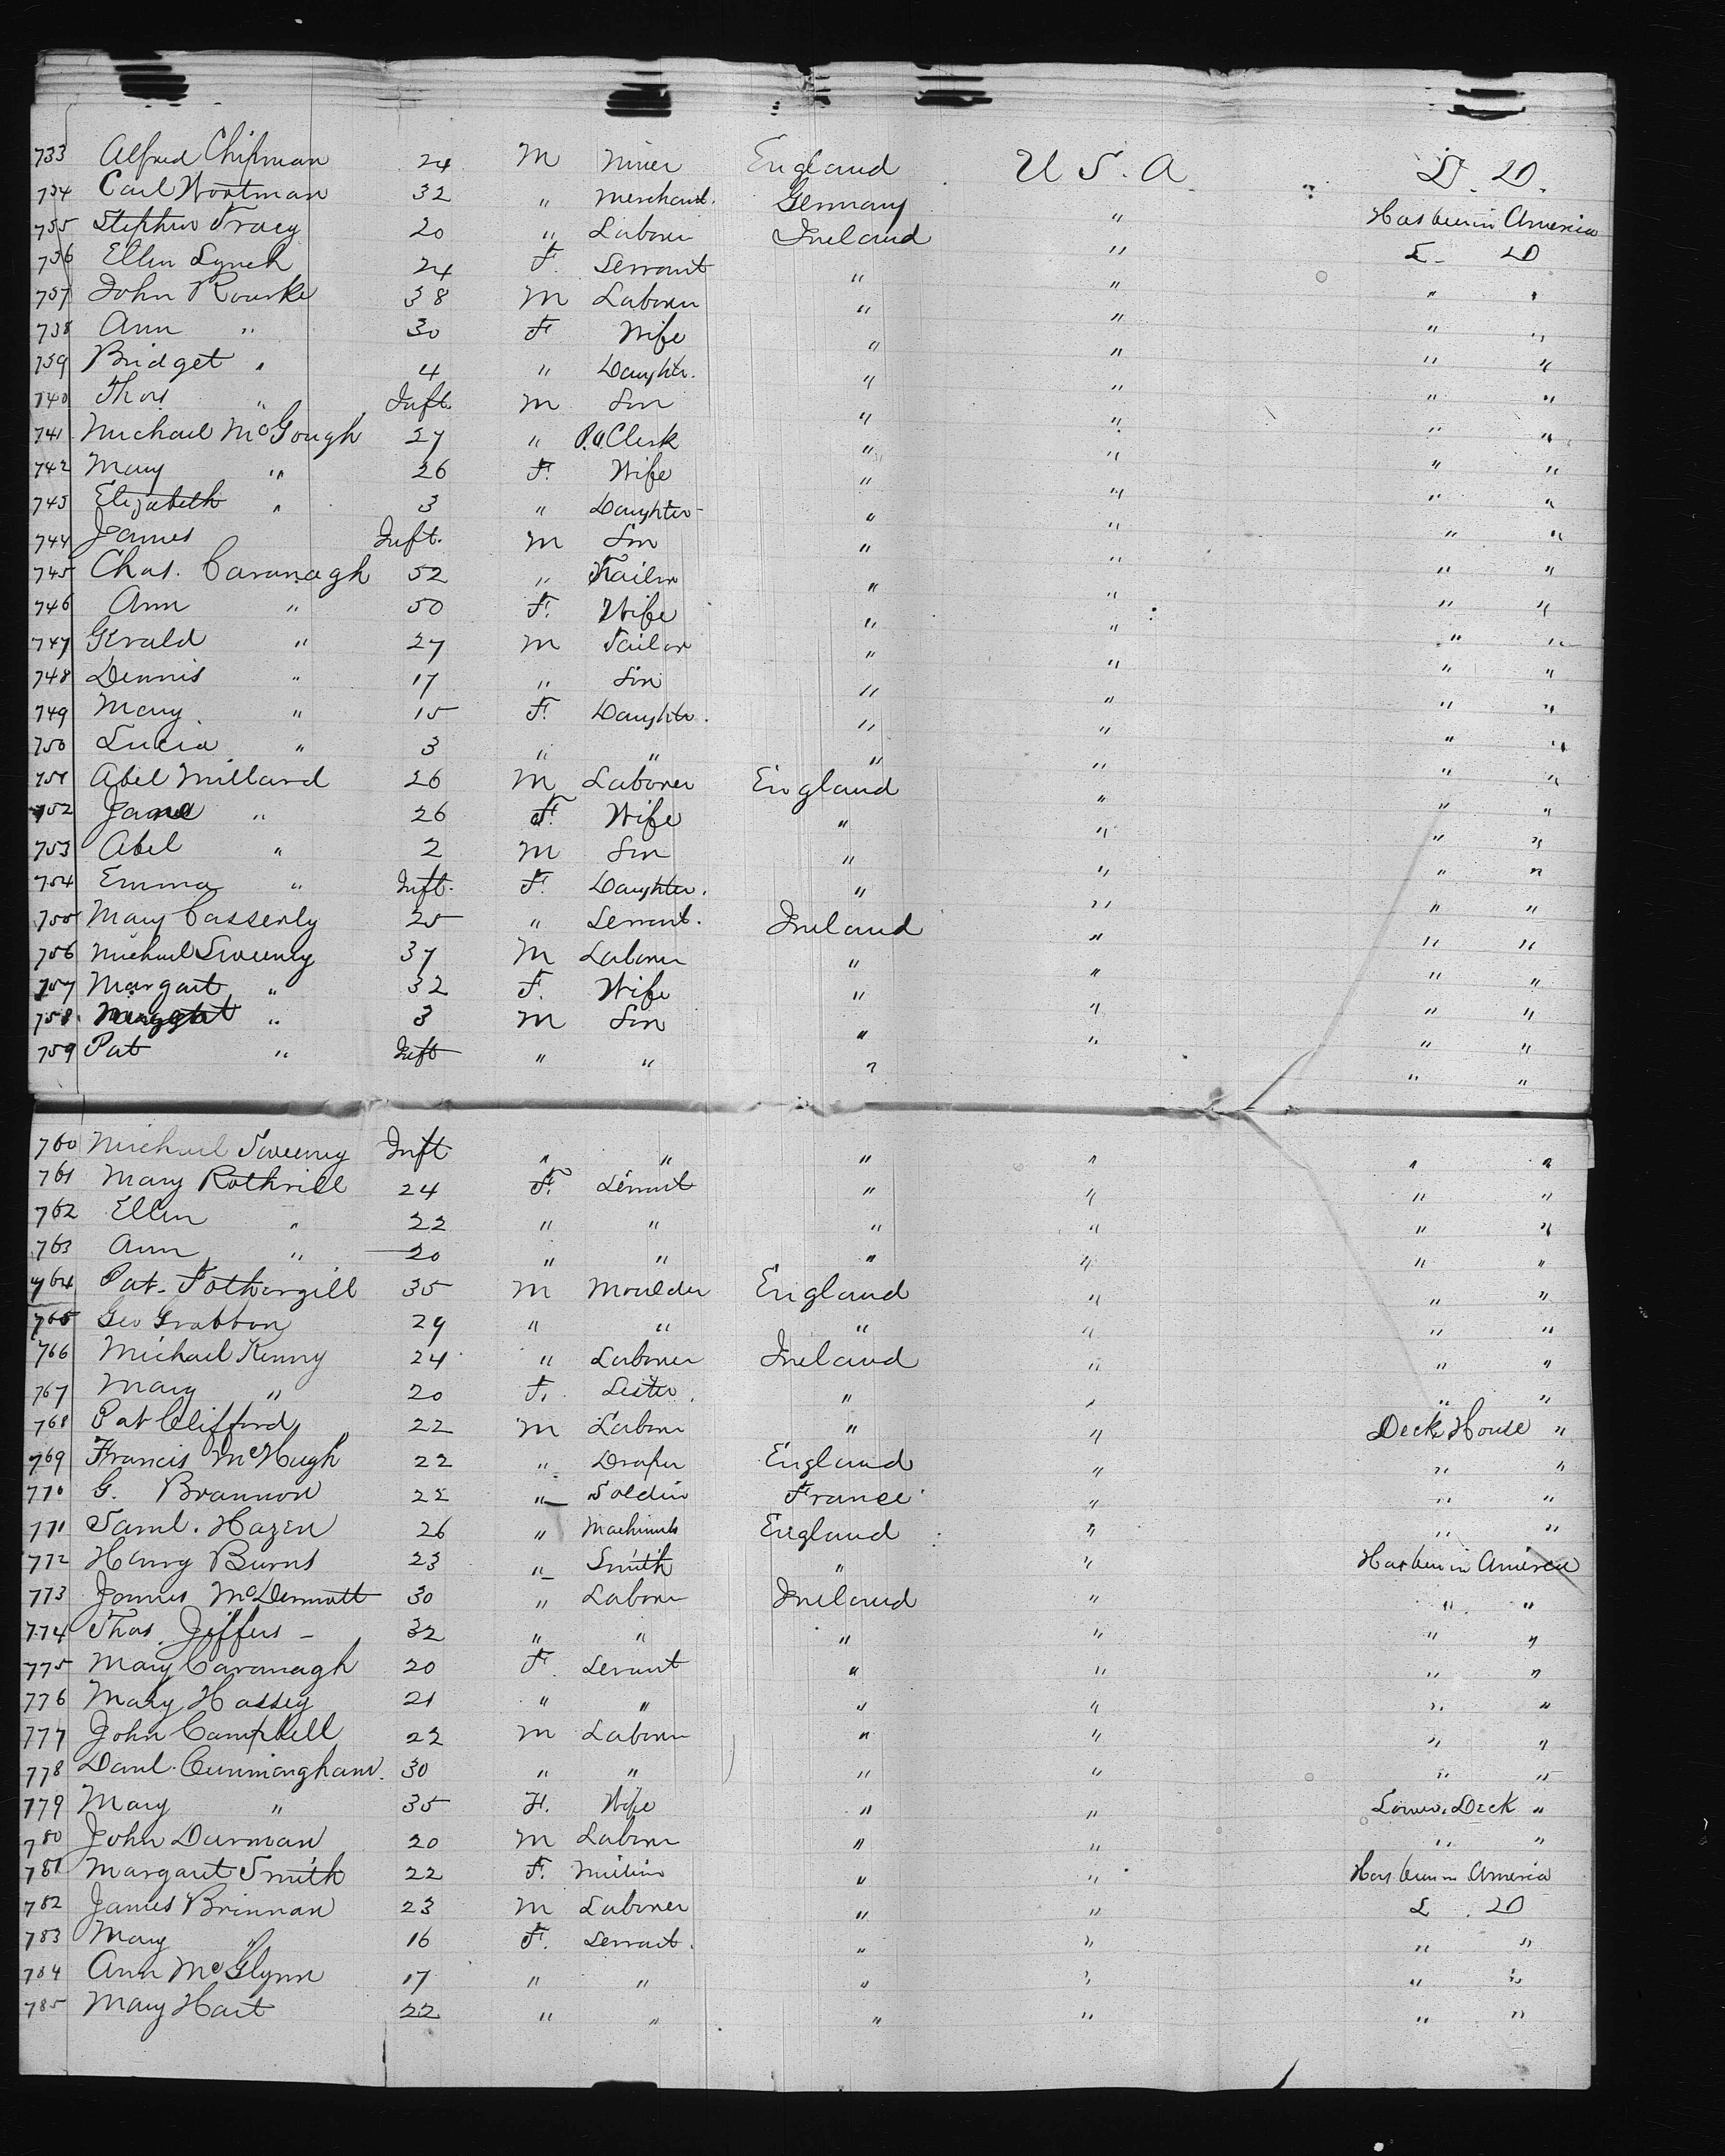 733 Alfred Chipman 24 M Miner England U S. A L. D.
734 Carl Wortman 32 " Merchant. Germany " Has been in America
735 Stephen Tracy 20 " Laborer Ireland " L. D
736 Ellen Lynch 24 F. Servant " " " "
737 John Rourke 38 M Laborer " " " "
738 Ann " 30 F Wife " " " "
739 Bridget " 4 " Daughter. " " " "
740 Thos " Inft. M Son " " " "
741 Michael McGough 27 " Clerk " " " "
742 Mary " 26 F. Wife " " " "
743 Elizabeth " 3 " Daughter " " " "
744 James Inft. M Son " " " "
745 Chas. Cavanagh 52 " Tailor " " " "
746 Ann " 50 F. Wife " " " "
747 Gerald " 27 M Tailor " " " "
748 Dennis " 17 " Son " " " "
749 Mary " 15 F. Daughter. " " " "
750 Lucia " 3 " " " " " "
751 Abel Millard 26 M Laborer England " " "
752 Jane " 26 F. Wife " " " "
753 Abel " 2 M Son " " " "
754 Emma " Inft. F. Daughter. " " " "
755 Mary Casserly 25 " Servant. Ireland " " "
756 Michael Sweeney 37 M Laborer " " " "
757 Margaret " 32 F. Wife " " " "
758 " 3 M Son " " " "
759 Pat " Inft " " " " " "
760 Michael Sweeney Inft " " " " " "
761 Mary Rothrill 24 F. Servant " " " "
762 Ellen " 22 " " " " " "
763 Ann " 20 " " " " " "
764 Pat. Fothergill 35 M Moulder England " " "
765 Geo Grabbon 29 " " " " " "
766 Michael Kenny 24 " Laborer Ireland " " "
767 Mary " 20 F. Sister. " " " "
768 Pat Clifford 22 M Laborer " " Deck House "
769 Francis McHugh 22 " Draper England " " "
770 G. Brannon 22 " Soldier France " " "
771 Saml. Hazen 26 " Machinist England " " "
772 Harry Burns 23 " Smith " " Has been in America
773 James McDermott 30 " Laborer Ireland " " "
774 Thos. Jeffers 32 " " " " " "
775 Mary Cavanagh 20 F. Servant " " " "
776 Mary Hassey 21 " " " " " "
777 John Campbell 22 M Laborer " " " "
778 Danl. Cunningham. 30 " " " " " "
779 Mary " 35 F. Wife " " Lower Deck "
780 John Durman 20 M Laborer " " " "
781 Margaret Smith 22 F. " " Has been in America
782 James Brinnan 23 M Laborer " " L. D
783 Mary " 16 F. Servant. " " " "
784 Ann McGlynn 17 " " " " " "
785 Mary Hart 22 " " " " " "